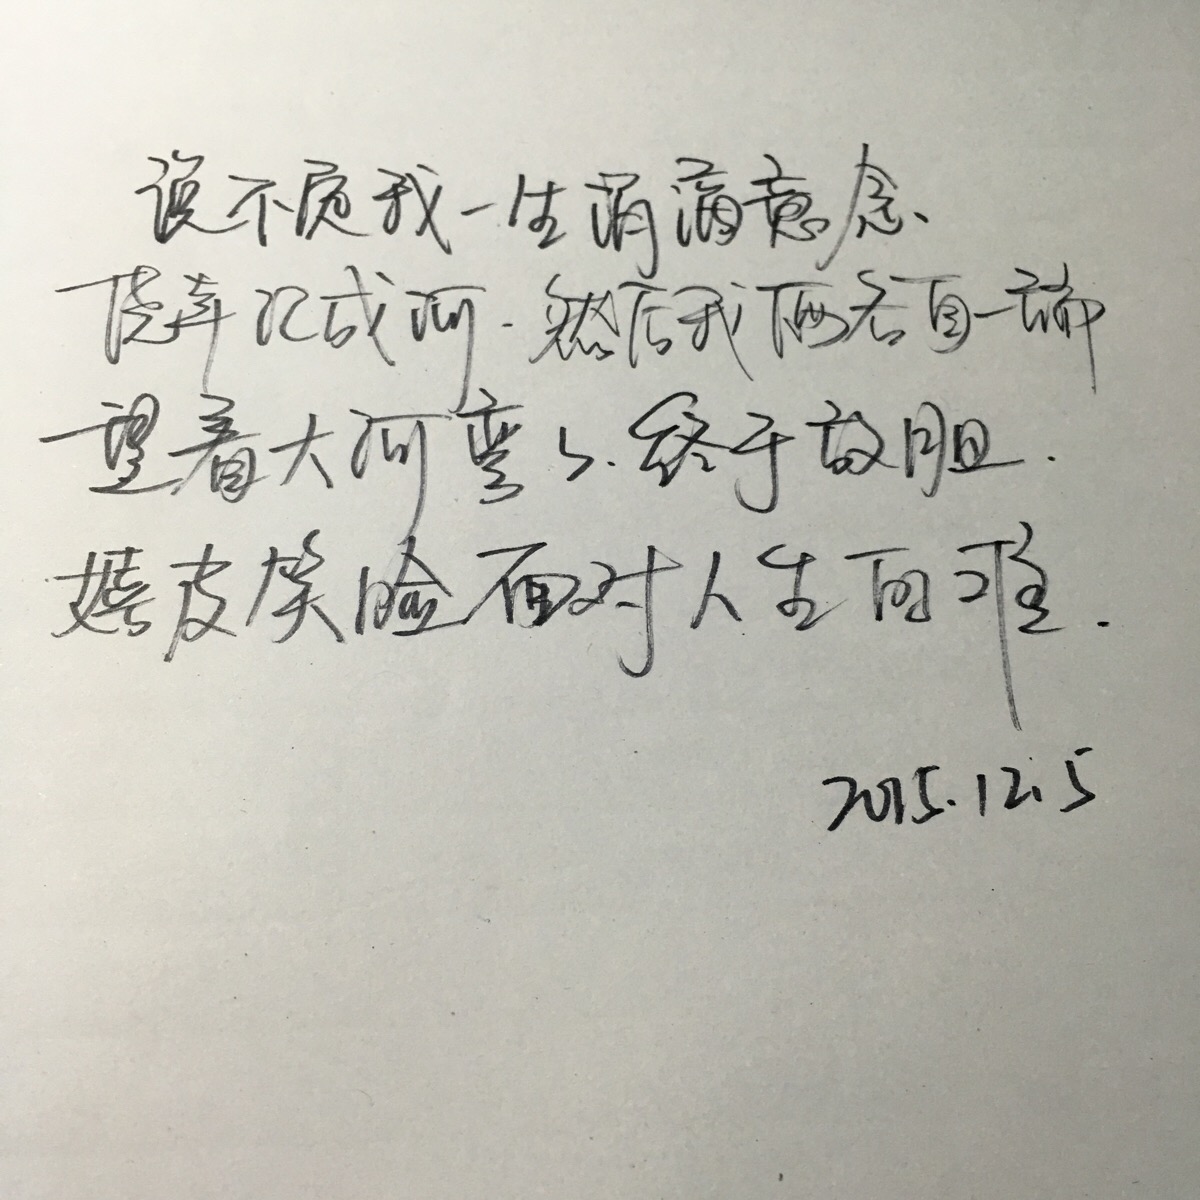 说不定我一生涓滴意念、
侥幸汇成河.然后我俩各自一端
望着大河弯弯.终于放胆.
嬉皮笑脸面对人生的难.
2015.12.5